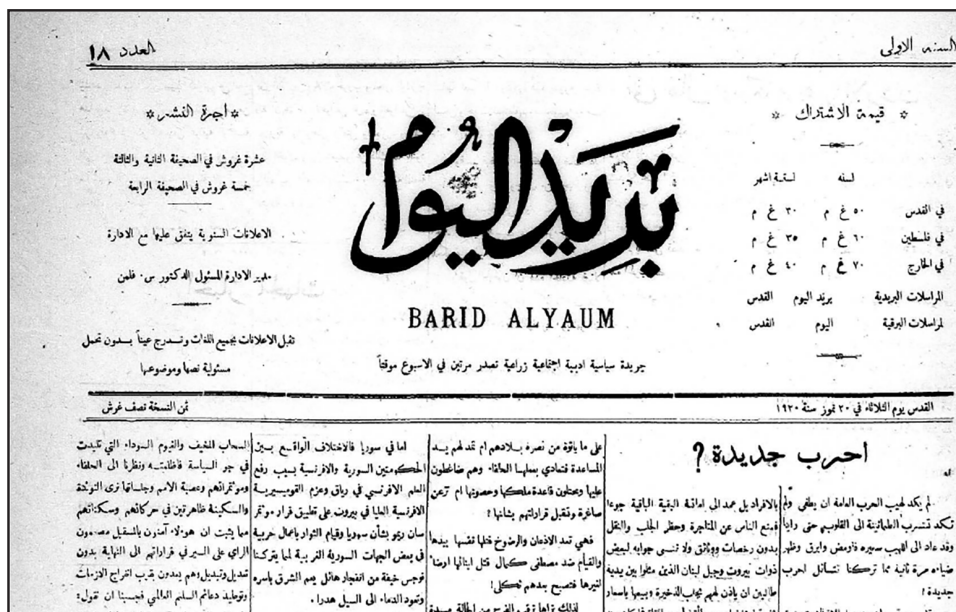 السنه الاولى
العدد ١٨
* قيمة الاشتراك *
لسنه لستة اشهر
في القدس ٥٠ غ م ٣٠ غ م
في فلسطين ٦٠ غ م ٣٥ غ م
في الخارج ٧٠ غ م ٤٠ غ م
المراسلات البريدية بريد اليوم القدس
لمراسلات البرقية اليوم القدس
بريد اليوم
BARID ALYAUM
جريدة سياسية ادبية اجتماعية زراعية تصدر مرتين في الاسبوع موقتاً
* أجرة النشر *
عشرة غروش في الصحيفة الثانية والثالثة
خمسة غروش في الصحيفة الرابعة
الاعلانات السنوية يتفق عليها مع الادارة
مدير الادارة المسئول الدكتور س. فلمن
تقبل الاعلانات بجميع اللغات وتدرج عيناً بدون تحمل
مسئولية نصها وموضوعها
القدس يوم الثلاثاء في ٢٠ تموز سنة ١٩٢٠
ثمن النسخة نصف غرش
احرب جديدة ؟
لم يكد لهيب الحرب العامة ان يطفي ولم
تكد تتسرب الطمأنينة الى القلوب حتى راينا
وقد عاد الى اللهيب سعيره فاومض وابرق وظهر
ضياءه مرة ثانية مما تركنا نتسائل احرب
جديدة ؟
بالافراد بل عمد الى اماتة البقية الباقية جوعا
فمنع الناس عن المتاجرة وحظر الجلب والنقل
بدون رخصات ووثائق ولا ننسى جوابه لبعض
ذوات بيروت وجبل لبنان الذين مثلوا بين يديه
طالبين ان ياذن لهم بجلب الذخيرة وبيعها باسعار
على ما باقوة من نصره بلادهم ام تمد لهم يد
المساعدة فتنادي بعملها الحلفاء وهم ضاغطون
عليها ويحتلون قاعدة ملكها وحصونها ام ترعن
وتقبل قراراتهم بشانها ؟
فهي تمد الاذعان والرضوخ قتلها نفسها بيدها
والقيام ضد مصطفى كمال قتل ابنائها ارضاء
لغيرها فتصبح بعدهم ثكلى !
اما في سوريا فالاختلاف الواقع بين
الحكومتين السورية والافرنسية بسبب رفع
العلم الافرنسي في رياق وعزم القوميسيرية
الافرنسية العليا في بيروت على تطبيق قرار موتمر
سان ريمو بشأن سوريا وقيام الثوار باعمال حربية
في بعض الجهات السورية الغربية لما يتركنا
نوجس خيفة من انفجار هائل يعم الشرق باسره
وتعود الدماء الى السيل هدرا .
السحاب المخيف والغيوم السوداء التي تلبدت
في جو السياسة فاظلمته ونظرنا الى الحلفاء
وموتمراتهم وعصبة الامم وجلساتها نرى التوئدة
والسكينة ظاهرتين في حركاتهم وسكناتهم
مما يثبت ان هولاء آمنون بالمستقبل مصممون
الراي على السير في قراراتهم الى النهاية بدون
تعديل وتبديل وهم يعدون بقرب انفراج الازمات
وتوطيد دعائم السلم العالمي فحسبنا ان نقول :